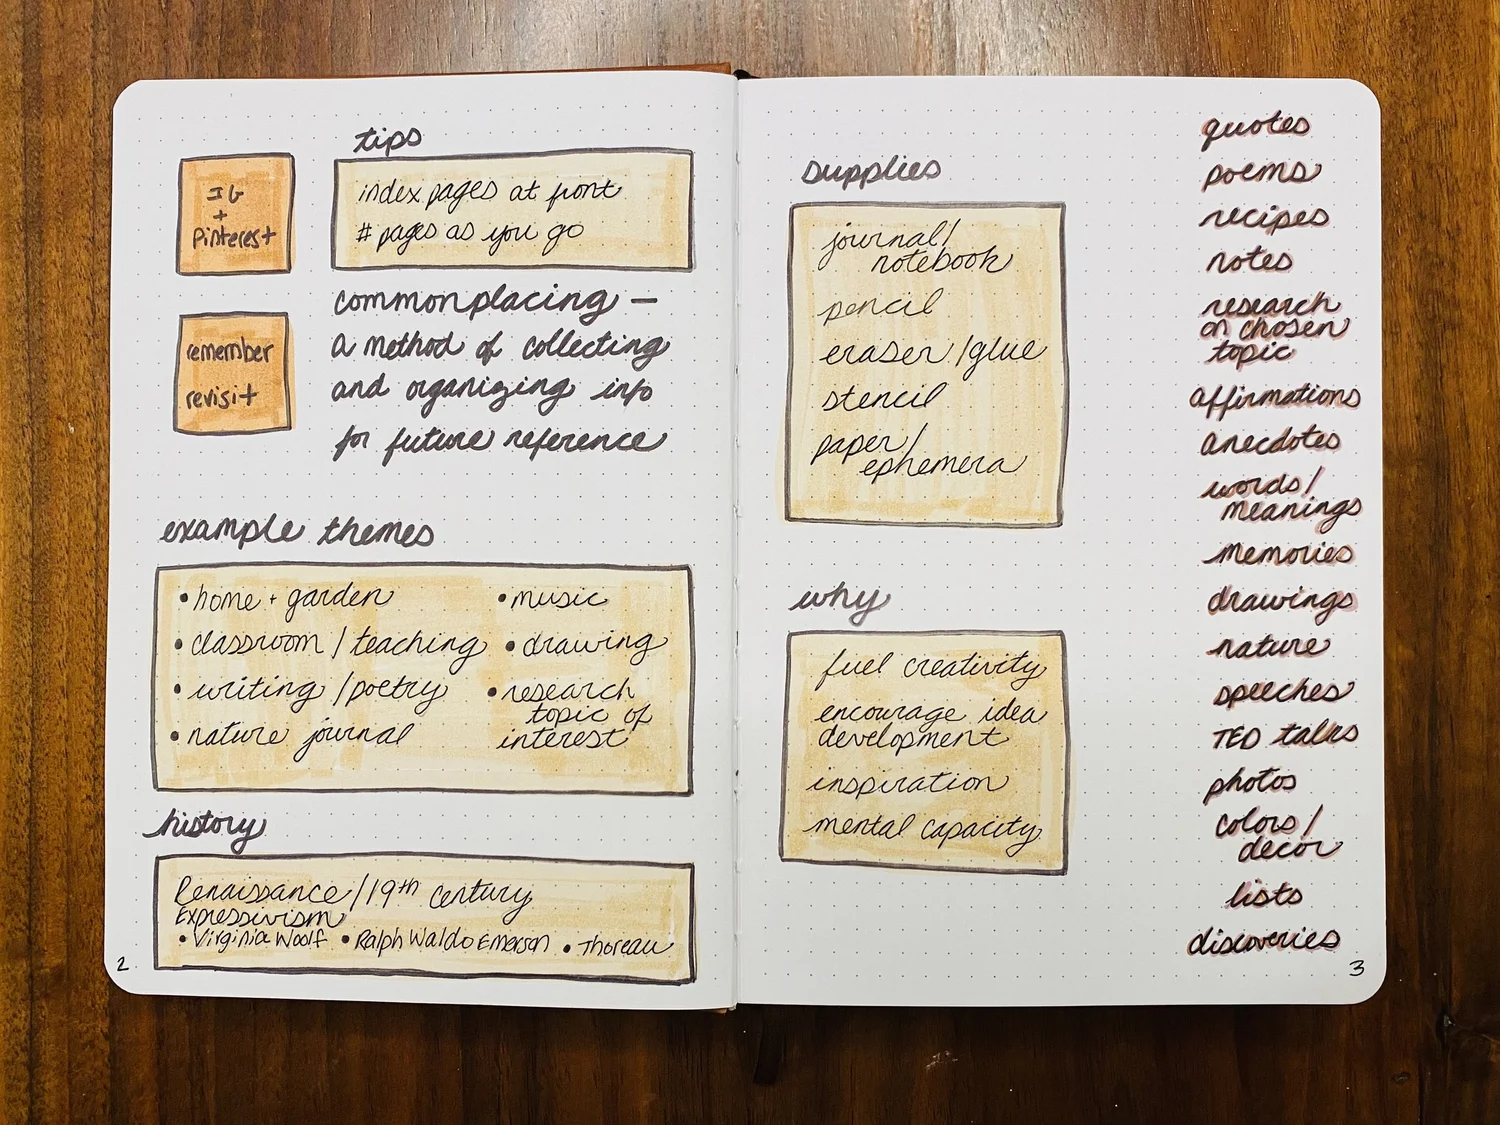 tips
IG
+
Pinterest
index pages at front
# pages as you go
remember
revisit
commonplacing —
a method of collecting
and organizing info
for future reference
example themes
• home + garden
• classroom / teaching
• writing / poetry
• nature journal
• music
• drawing
• research
topic of
interest
history
Renaissance / 19th century
Expressivism
• Virginia Woolf • Ralph Waldo Emerson • Thoreau
2
supplies
journal/
notebook
pencil
eraser / glue
stencil
paper/
ephemera
why
fuel creativity
encourage idea
development
inspiration
mental capacity
quotes
poems
recipes
notes
research
on chosen
topic
affirmations
anecdotes
words /
meanings
memories
drawings
nature
speeches
TED talks
photos
colors /
decor
lists
discoveries
3